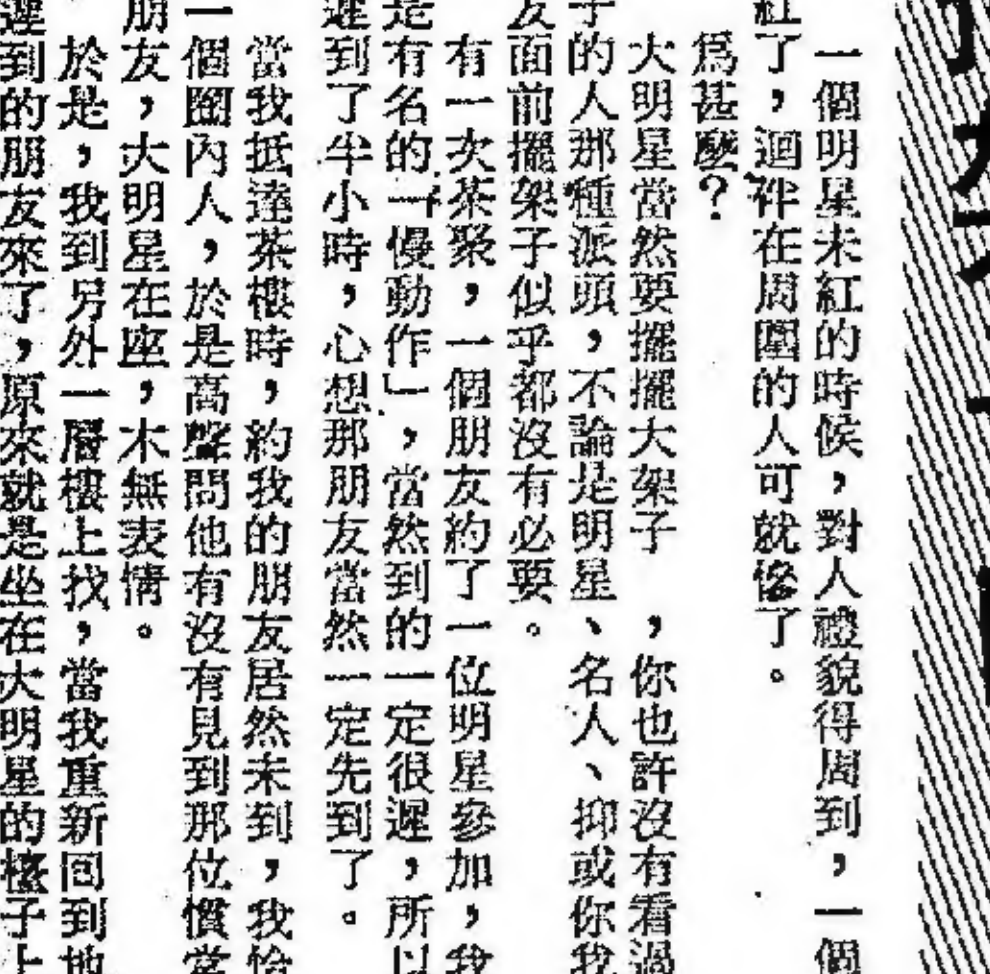 一個明星未紅的時候，對人禮貌得周到，一個
紅了，迴祥在周圍的人可就慘了。
爲甚麼？
大明星當然要擺擺大架子　，你也許沒有看過
子的人那種派頭，不論是明星、名人、抑或你我
友面前擺架子似乎都沒有必要。
有一次茶聚，一個朋友約了一位明星參加，我
是有名的「慢動作」，當然到的一定很遲，所以
遲到了半小時，心想那朋友當然一定先到了。
當我抵達茶樓時，約我的朋友居然未到，我恰
一個圈內人，於是高聲問他有沒有見到那位慣常
朋友，大明星在座，木無表情。
於是，我到另外一層樓上找，當我重新回到地
遲到的朋友來了，原來就是坐在大明星的檯子上